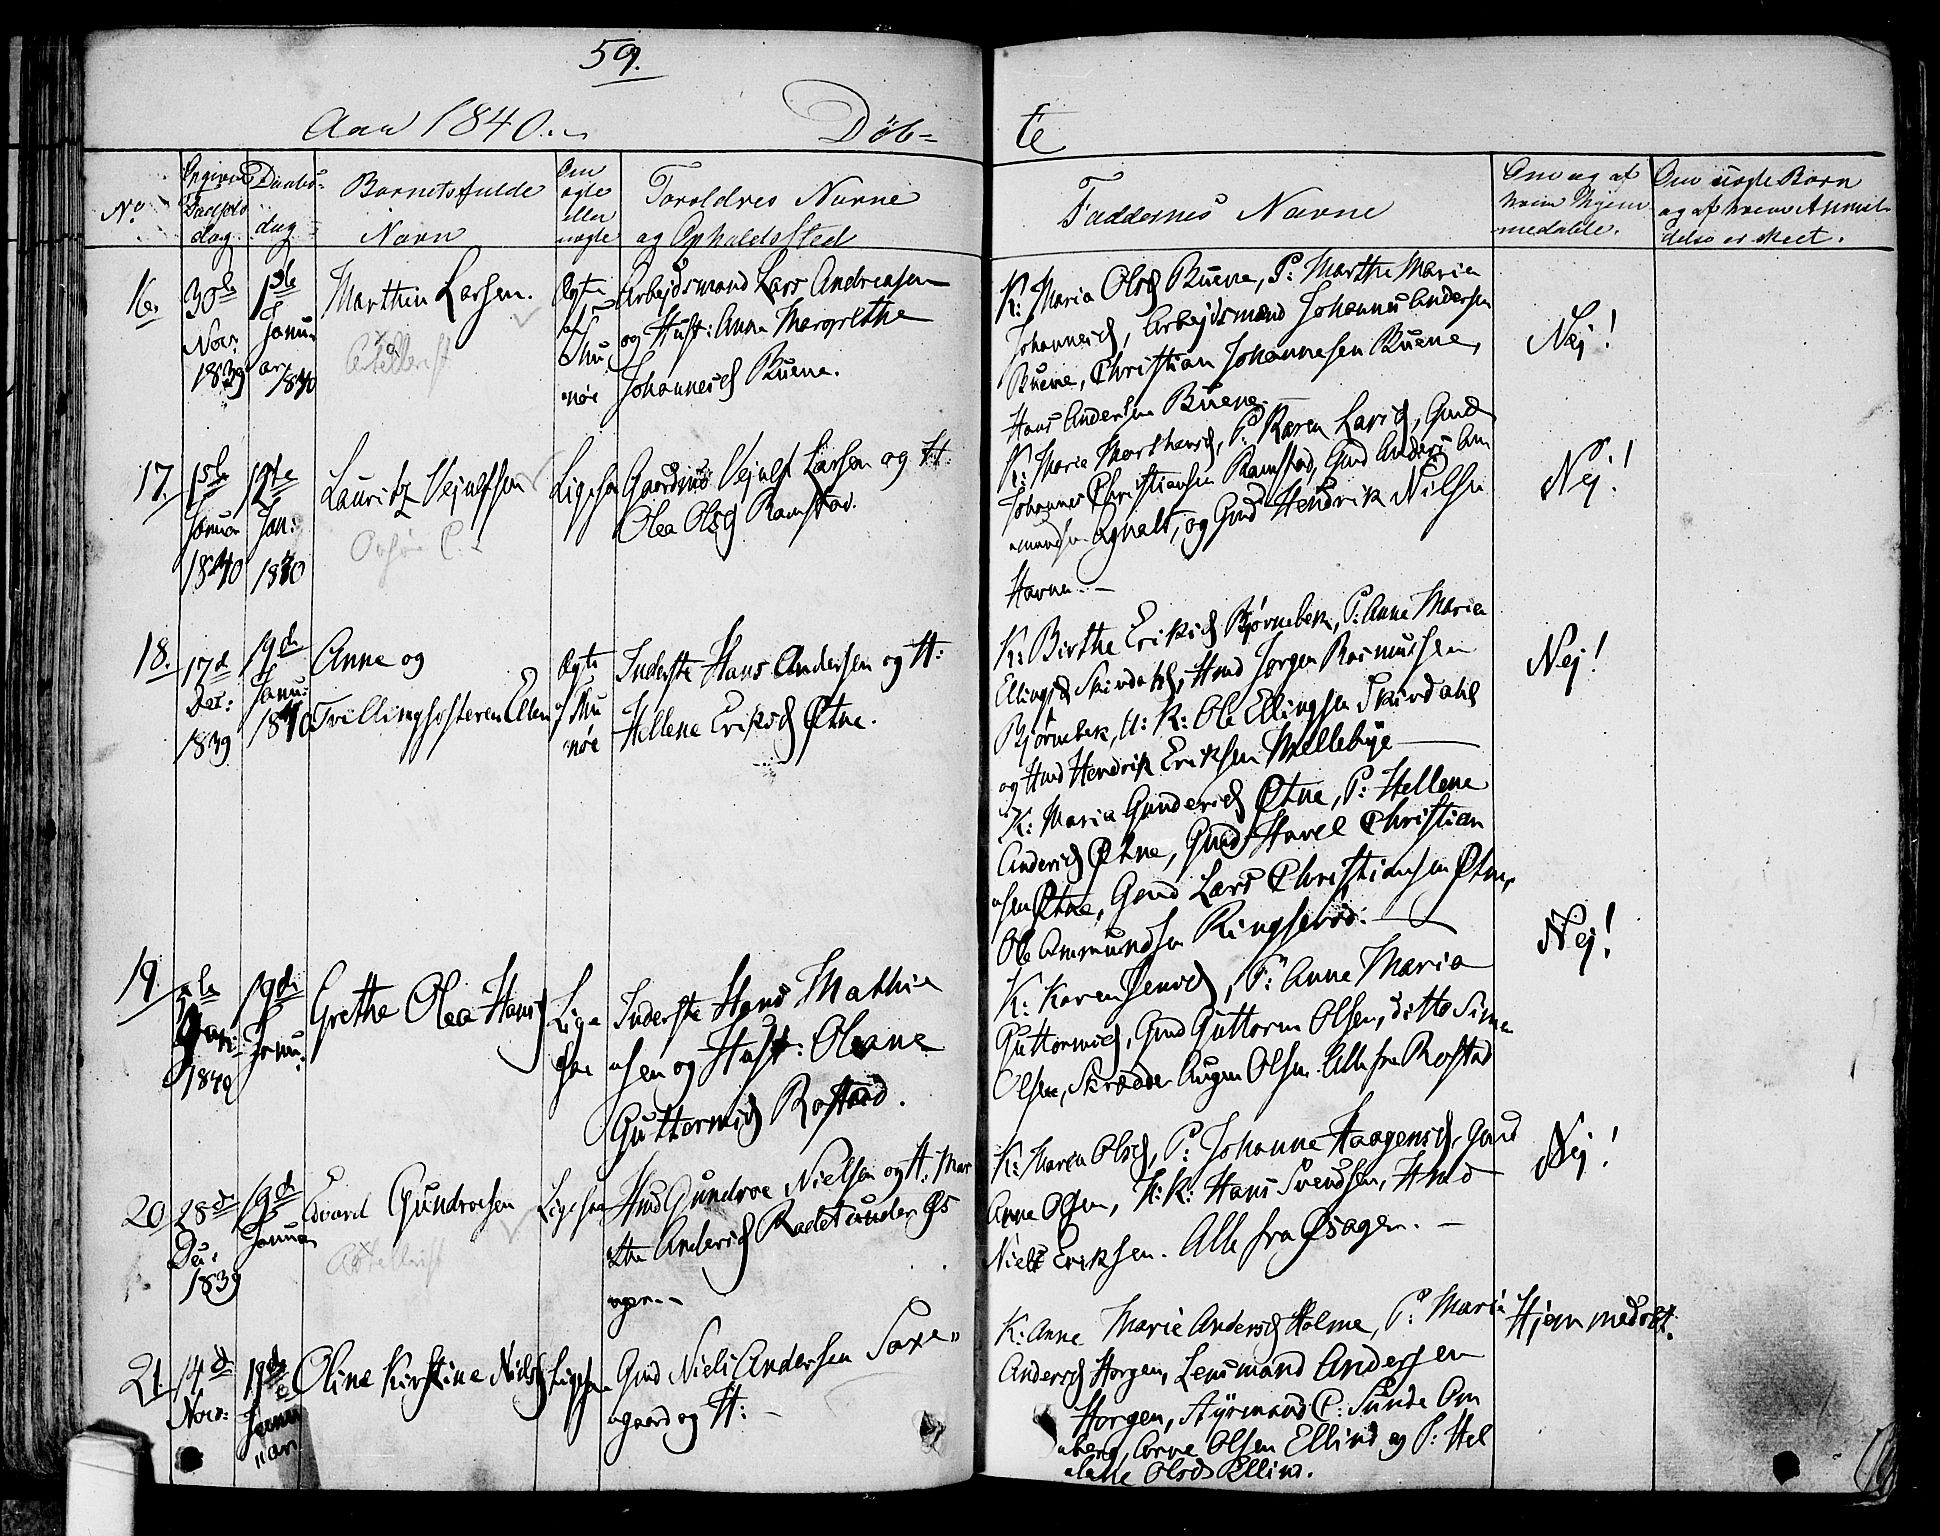 59.
Aar 1840.
Døb=
te
No
Opgiven Fødsels dag.
Daabs- dag
Barnets fulde Navn
Om ægte eller uægte
Forældres Navne og Opholdssted
Faddernes Navne
Om og af hvem hjem medøbt.
Om nogle Børn og af hvem Anmeldelse er skeet.
16.
30te Novr: 1839
1ste Januar 1840
Marthin Larsen.
Ægte
Arbejdsmand Lars Andreasen
og Hust: Anne Margrethe
Johannesd Buene.
K: Maria Olsd Buene, P: Marthe Maria
Johannesd, Arbejdsmand Johannes Andersen
Buene, Christian Johannesen Buene,
Hans Andersen Buene.
Nej!
17.
1ste Januar 1840
12te Jan: 1840
Lauritz Vejulfsen
Ligesaa
Gaardmd Vejulf Larsen og H:
Olea Olsd Ramstad.
K: Marie Marthensd, P: Karen Larsd, Gmd
Johannes Christiansen Ramstad, Gmd Anders Am
undsen Agnalt, og Gmd Hendrik Nilsen
Havne.
Nej!
18.
17de Dec: 1839
19de Janu: 1840
Anne og
Tvillingsøsteren Ellen
Ægte
Inderste Hans Andersen og H:
Hellene Eriksd Øtne.
K: Birthe Eriksd Bjørnebek, P: Anne Maria
Ellingsd Skirdahl, Hmd Jørgen Rasmussen
Bjørnebek, U: K: Ole Ellingsen Skirdahl
og Hmd Hendrik Eriksen Mellebye
K: Maria Gundersd Øtne, P: Hellene
Andersd Øtne, Gmd Havel Christian
sen Øtne, Gmd Lars Christiansen Øtne,
Ole Ammundsen Ringsevod.
Nej!
19
Jan: 1840
19de Janu:
Grethe Olea Hansd
Ligesaa
Inderste Hans Mathia
sen og Hust: Oleane
Guttormsd Rostad.
K: Karen Jensd, P: Anne Maria
Guttormsd, Gmd Guttorm Olsen, ditto Simen
Olsen, Skrædder Augen Olsen. Alle fra Rostad
Nej!
20
28de Dec: 1839
19de Januar
Edvard Gundroesen
Ligesaa
Hmd Gundroe Nielsen og H. Mar
the Andersd Rodet under Øs
agen.
K: Maren Olsd, P: Johanne Haagensd, Gmd
Arne Olsen, U: K: Hans Svendsen, Hmd
Niels Eriksen. Alle fra Øsagen.
Nej!
21
14de Novr:
19de Januar
Oline Kirstine Nielsd
Ligesaa
Gmd Niels Andersen Saxe
gaard og H:
K: Anne Marie Andersd Holme, P: Maria
Andersd Horgen, Lensmand Andersen
Horgen, Styrmand C: Sunde Om
berg, Arne Olsen Ellind og P: Hel
lene Olsd Ellind.
Hjemmedøbt.